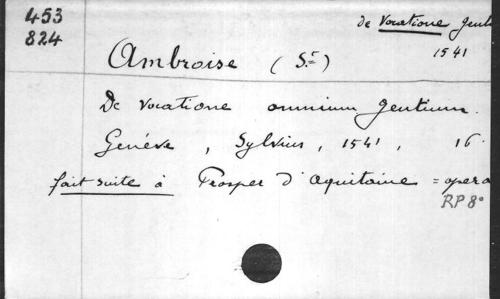 453
824
de Vocatione Gent
1541
Ambroise (St)
De vocatione omnium gentium.
Genève, Sylvius, 1541, 16°
fait suite à Prosper d'Aquitaine = opera
RP 8°